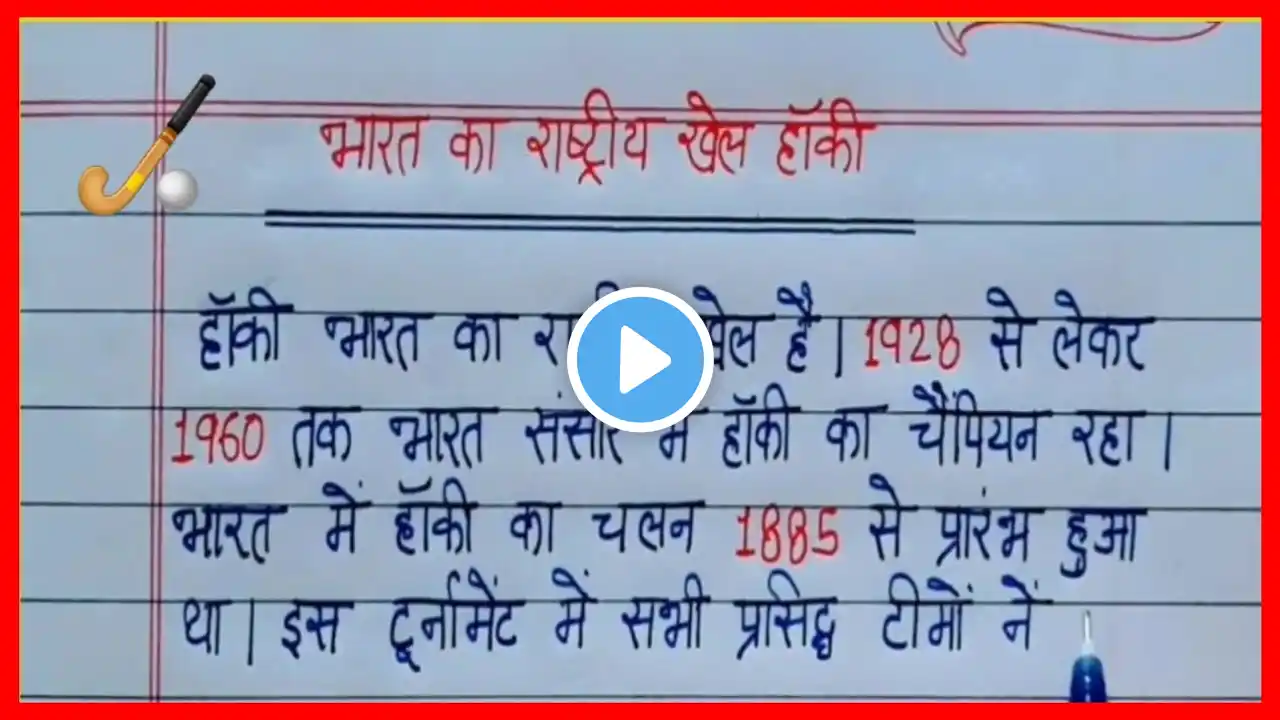 भारत का राष्ट्रीय खेल हॉकी
हॉकी भारत का खेल है। 1928 से लेकर
1960 तक भारत संसार में हॉकी का चैंपियन रहा।
भारत में हॉकी का चलन 1885 से प्रारंभ हुआ
था। इस टूर्नामेंट में सभी प्रसिद्ध टीमों नें